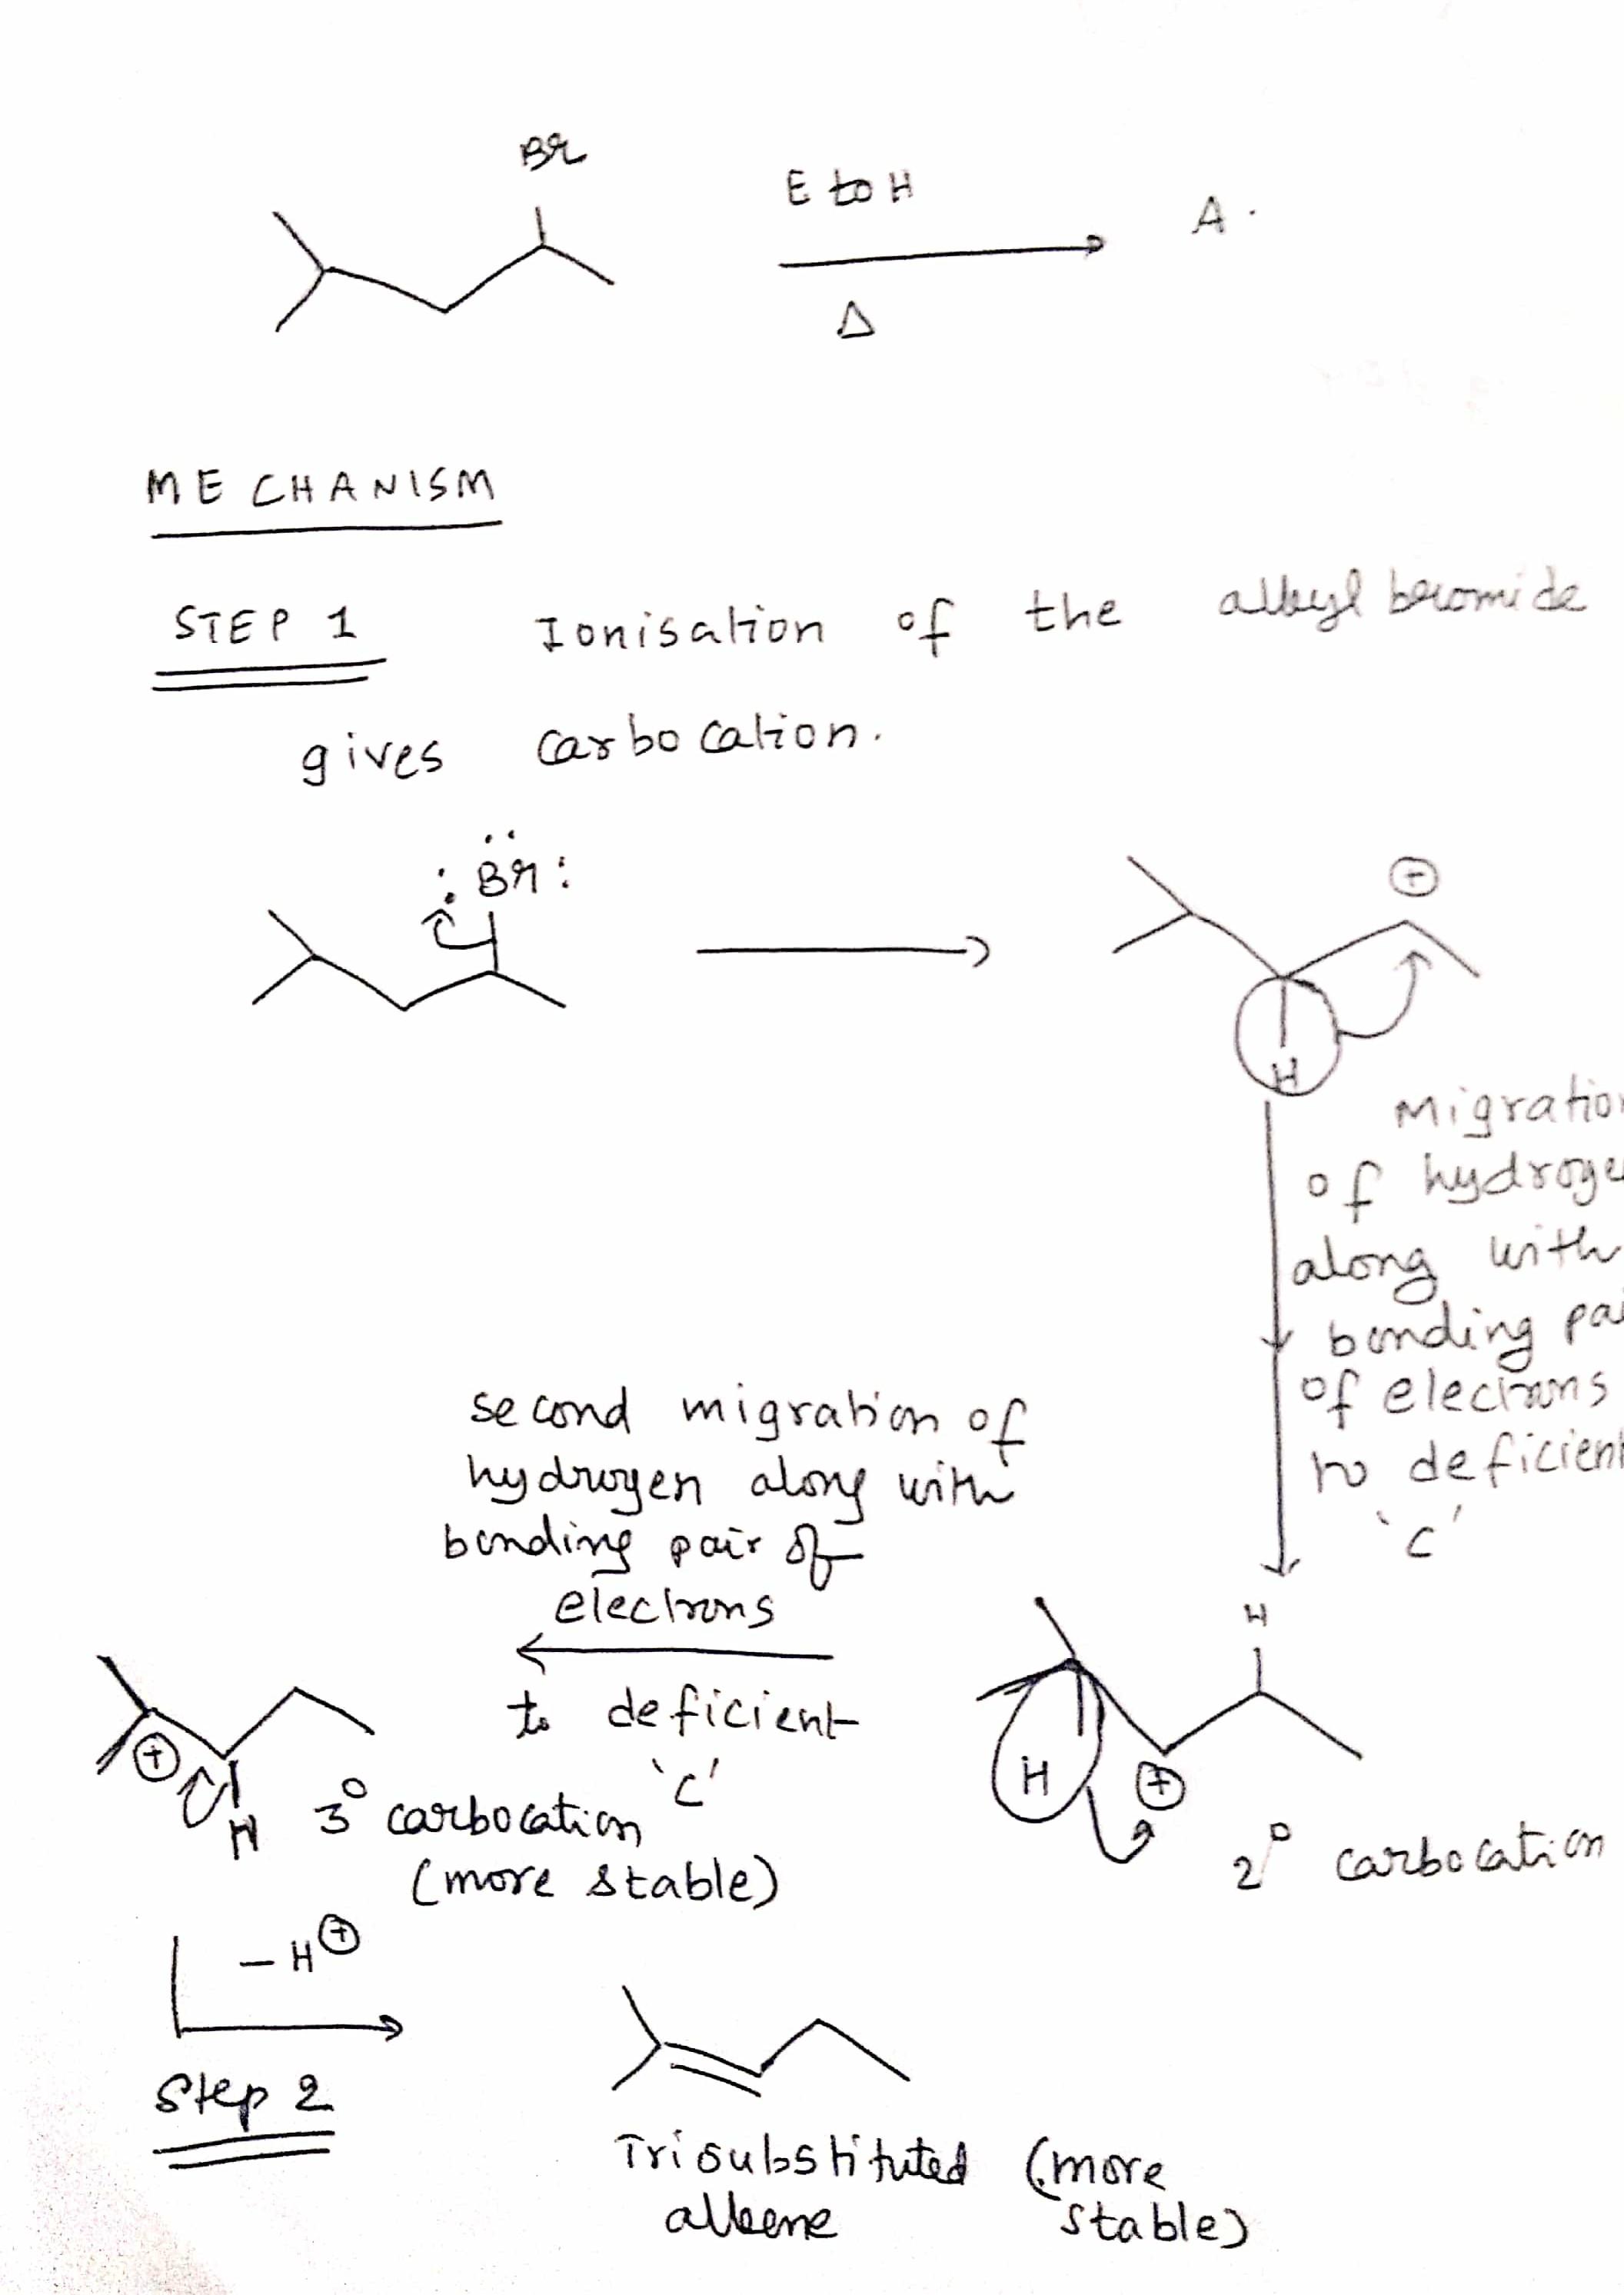 Br
EtOH
A.
Δ
MECHANISM
STEP 1 Ionisation of the alkyl bromide
gives carbocation.
:Br:
+
H
Migration
of hydrogen
along with
bonding pai
of electrons
to deficient
'C'
second migration of
hydrogen along with
bonding pair of
electrons
to deficient
'C'
H
H
+
2° carbocation
+
H
3° carbocation
(more stable)
-H+
Step 2
Trisubstituted (more
alkene stable)